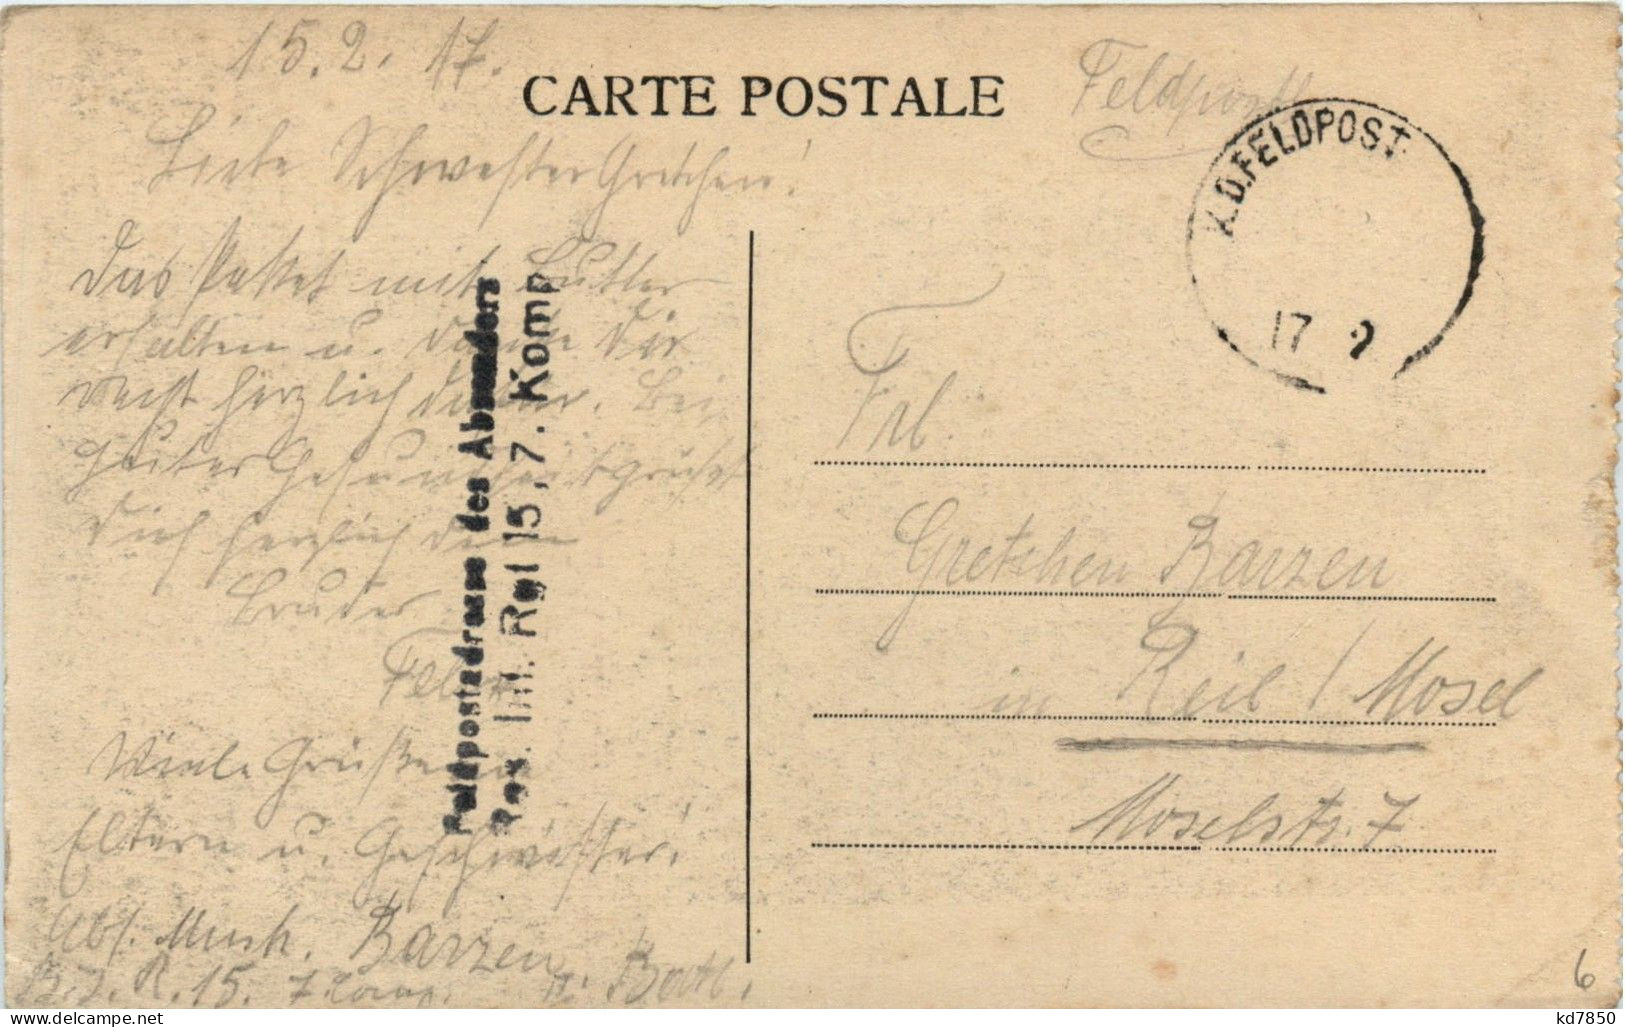 15.2.17.
CARTE POSTALE
Feldpost
Liebe Schwester Gretchen!
K.D.FELDPOST
17 2
Das Paket mit Butter
erhalten u. danke Dir
recht herzlich dafür. Bei
guter Gesundheit grüßt
Dich herzlich Dein
Bruder
Felix
Viele Grüße an
Eltern u. Geschwister!
Abs. Musk. Barzen
R.I.R. 15. 7 Komp. II. Batl.
Feldpostadresse des Absenders
Res. Inf. Rgt 15, 7. Komp
Frl.
Gretchen Barzen
in Reil / Mosel
Moselstr. 7
6
delcampe.net
kd7850